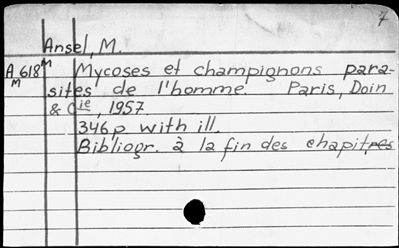 7
Ansel, M.
A 618 M Mycoses et champignons para-
M sites de l'homme Paris, Doin
& Cie, 1957.
346p with ill.
Bibliogr. à la fin des chapitres